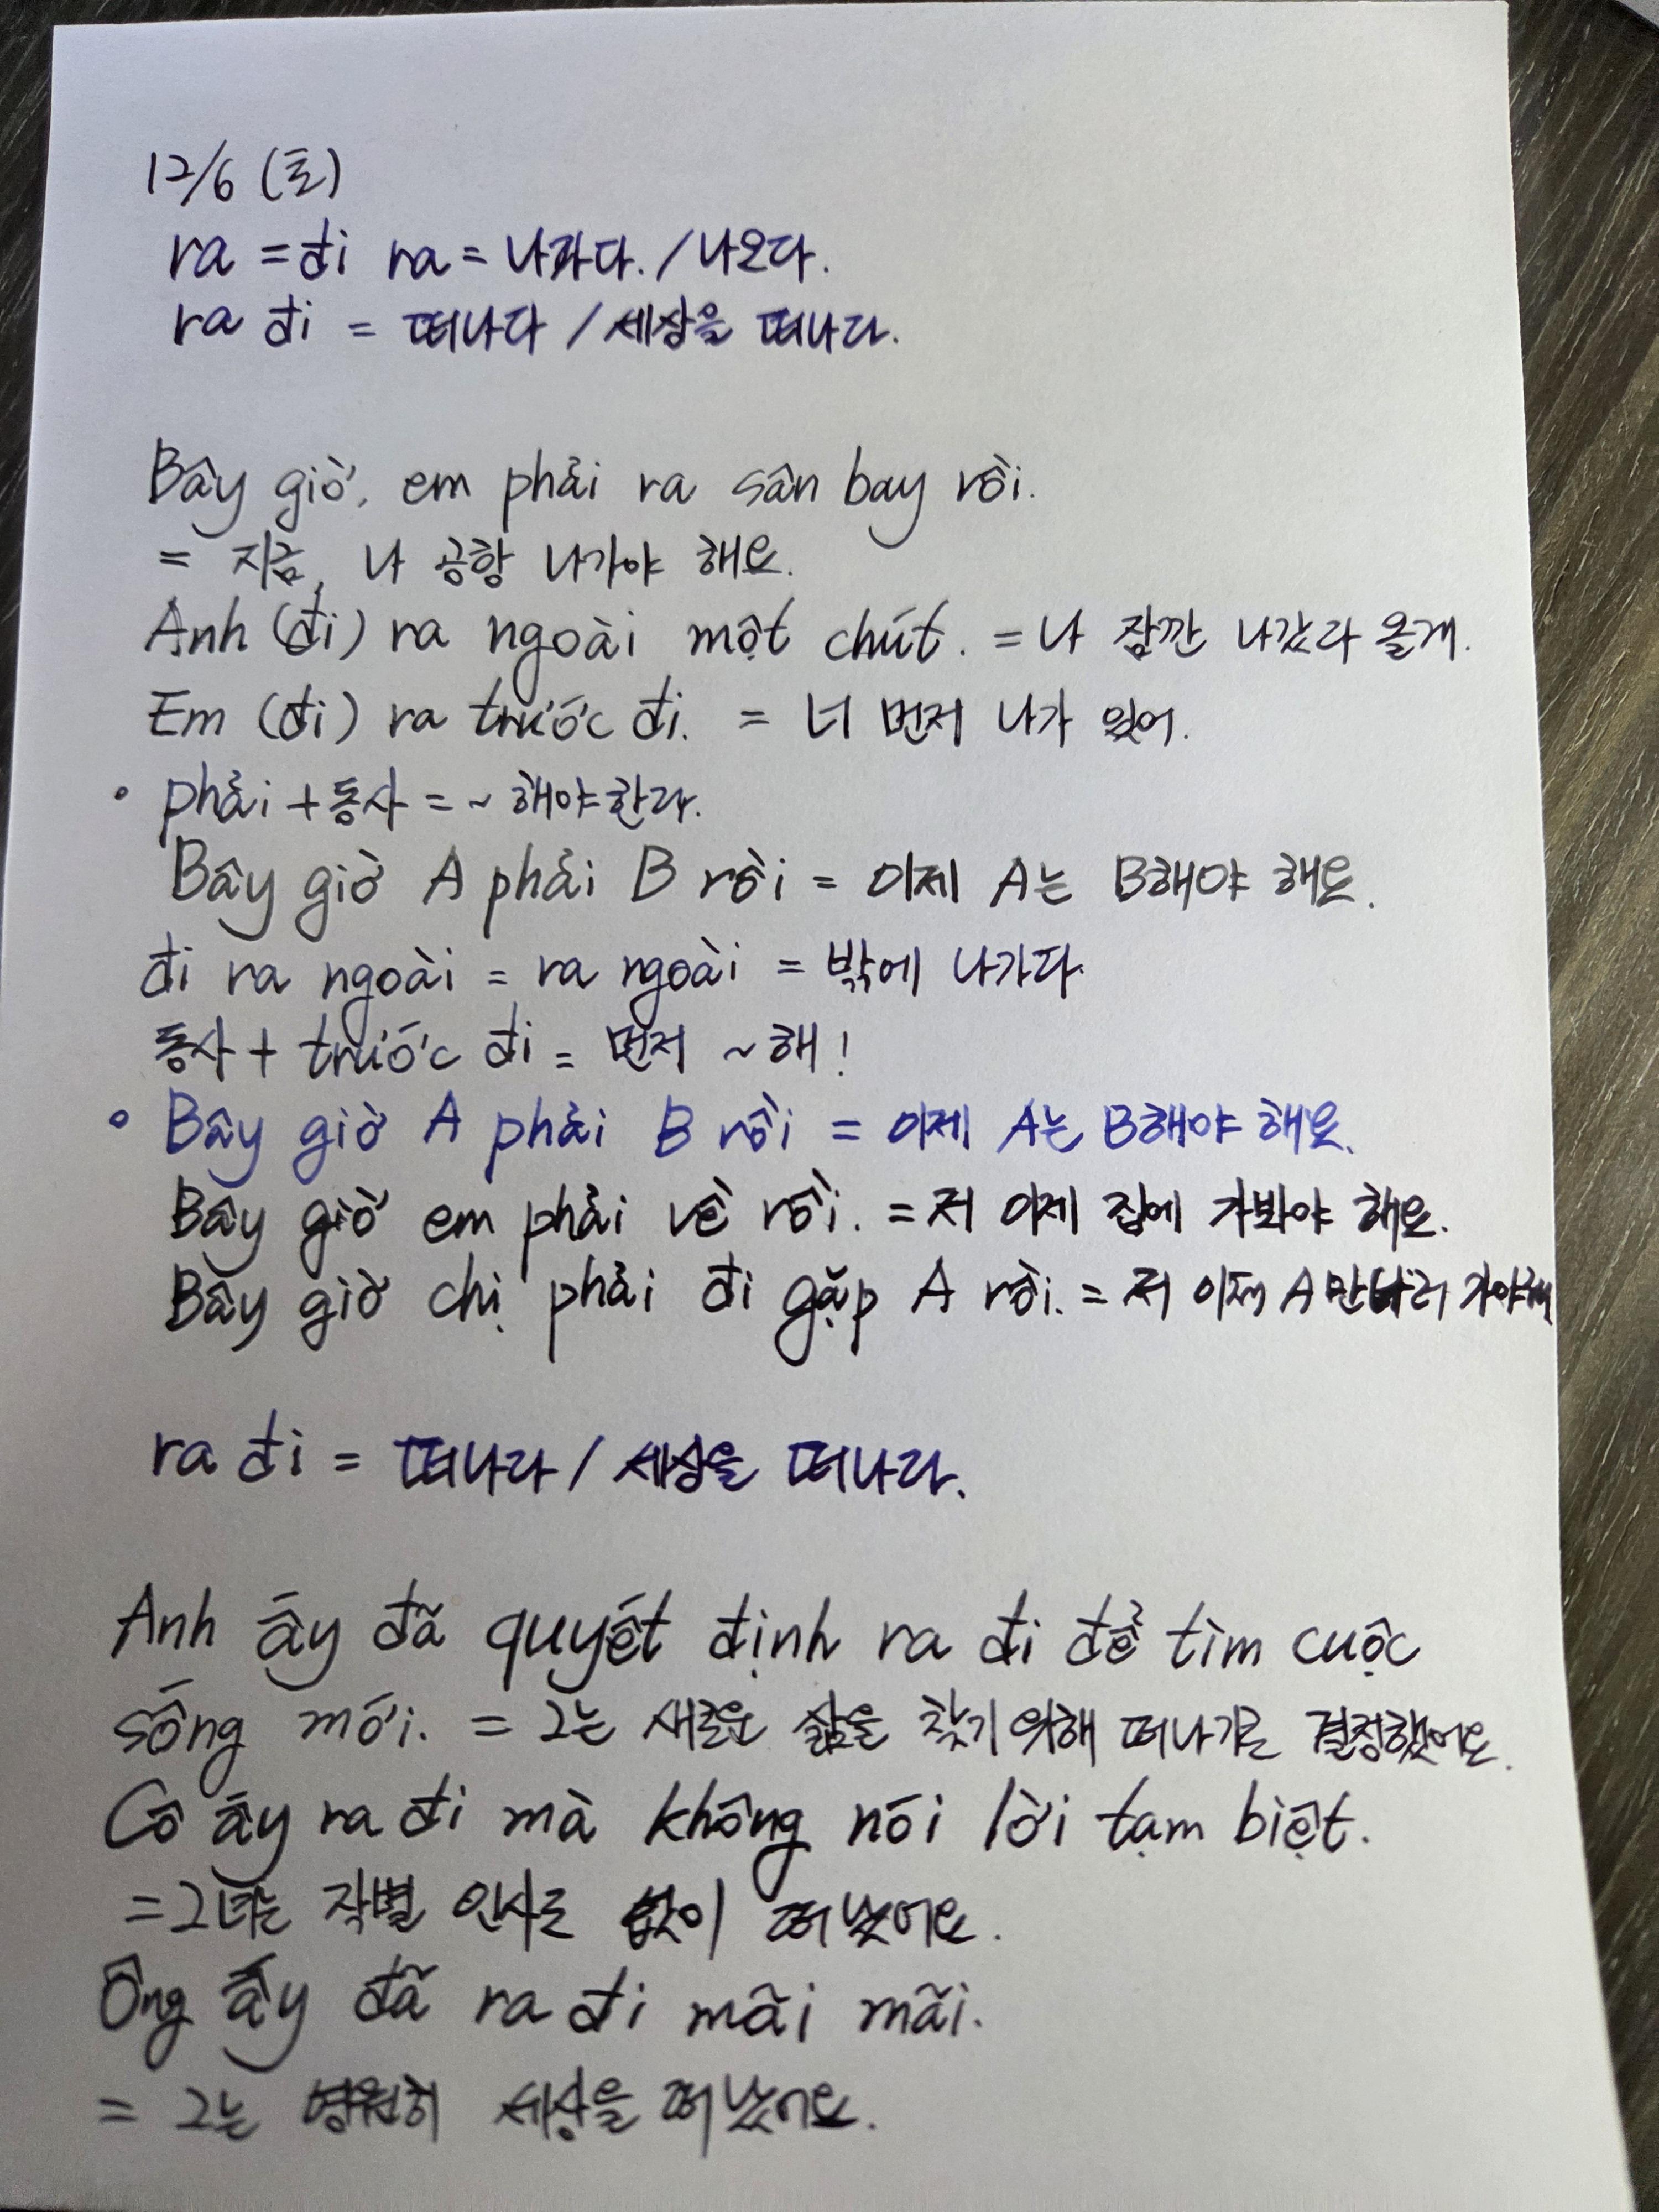 12/6 (토)
ra = đi ra = 나가다. / 나오다.
ra đi = 떠나다 / 세상을 떠나다.
Bây giờ, em phải ra sân bay rồi.
= 지금, 나 공항 나가야 해요.
Anh (đi) ra ngoài một chút. = 나 잠깐 나갔다 올게.
Em (đi) ra trước đi. = 너 먼저 나가 있어.
• phải + 동사 = ~ 해야한다.
Bây giờ A phải B rồi = 이제 A는 B해야 해요.
đi ra ngoài = ra ngoài = 밖에 나가다.
동사 + trước đi = 먼저 ~해!
• Bây giờ A phải B rồi = 이제 A는 B해야 해요.
Bây giờ em phải về rồi. = 저 이제 집에 가봐야 해요.
Bây giờ chị phải đi gặp A rồi. = 저 이제 A 만나러 가야해
ra đi = 떠나다 / 세상을 떠나다.
Anh ấy đã quyết định ra đi để tìm cuộc
sống mới. = 그는 새로운 삶을 찾기 위해 떠나기로 결정했어요.
Cô ấy ra đi mà không nói lời tạm biệt.
= 그녀는 작별 인사도 없이 떠났어요.
Ông ấy đã ra đi mãi mãi.
= 그는 영원히 세상을 떠났어요.